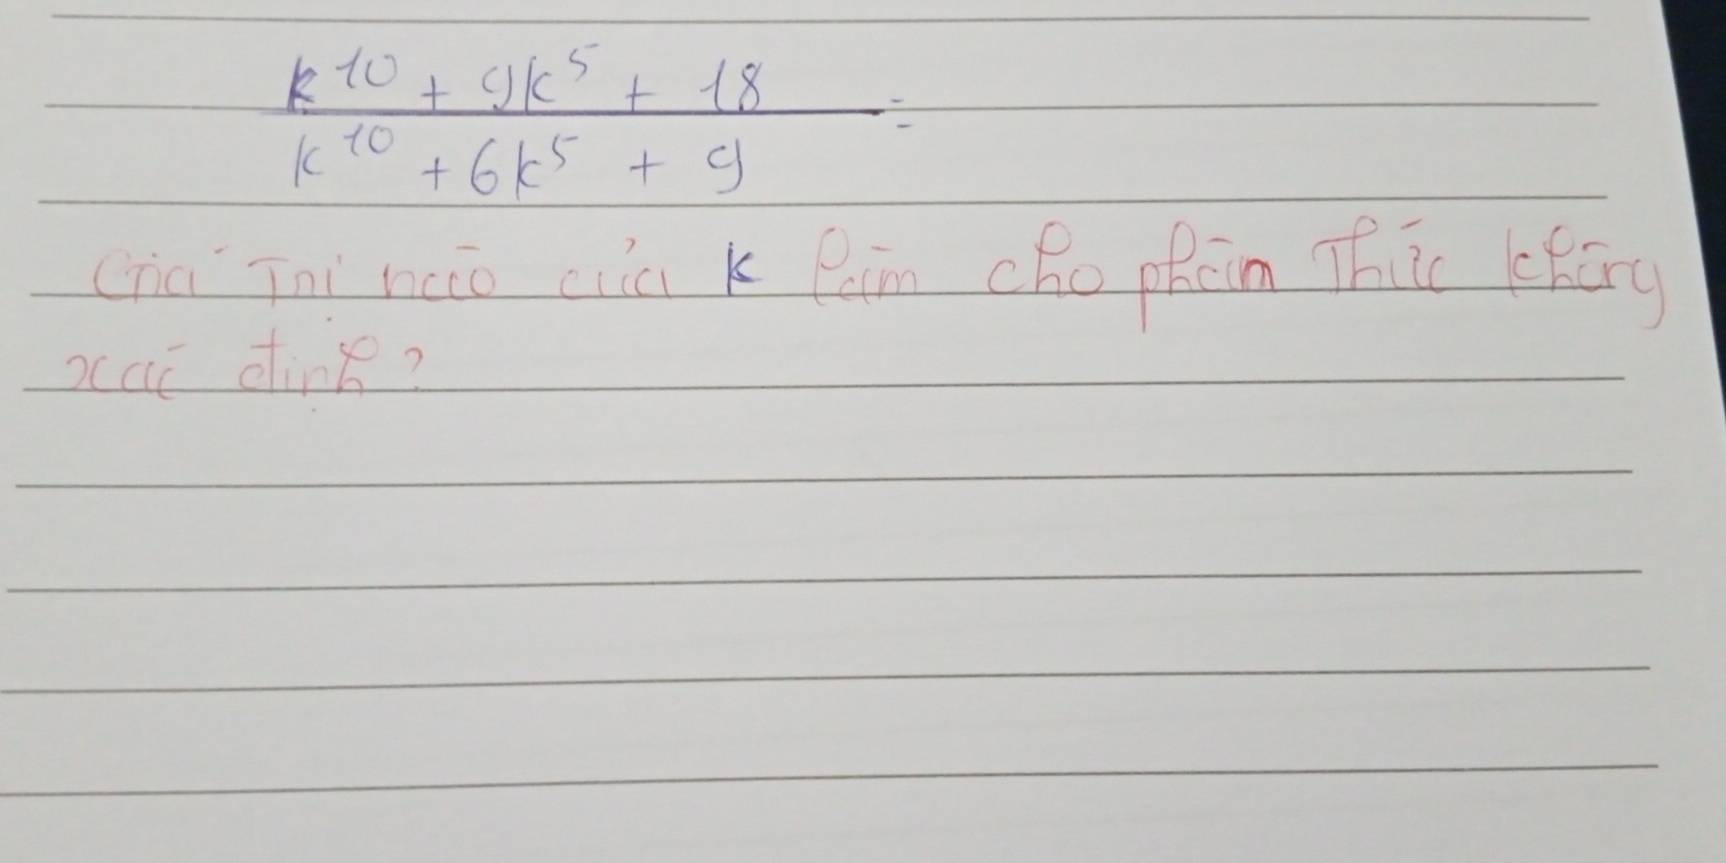 k^10 + 9k^5 + 18
k^10 + 6k^5 + 9 =
Giá Trị nào của k làm cho phân Thức không
xác định?